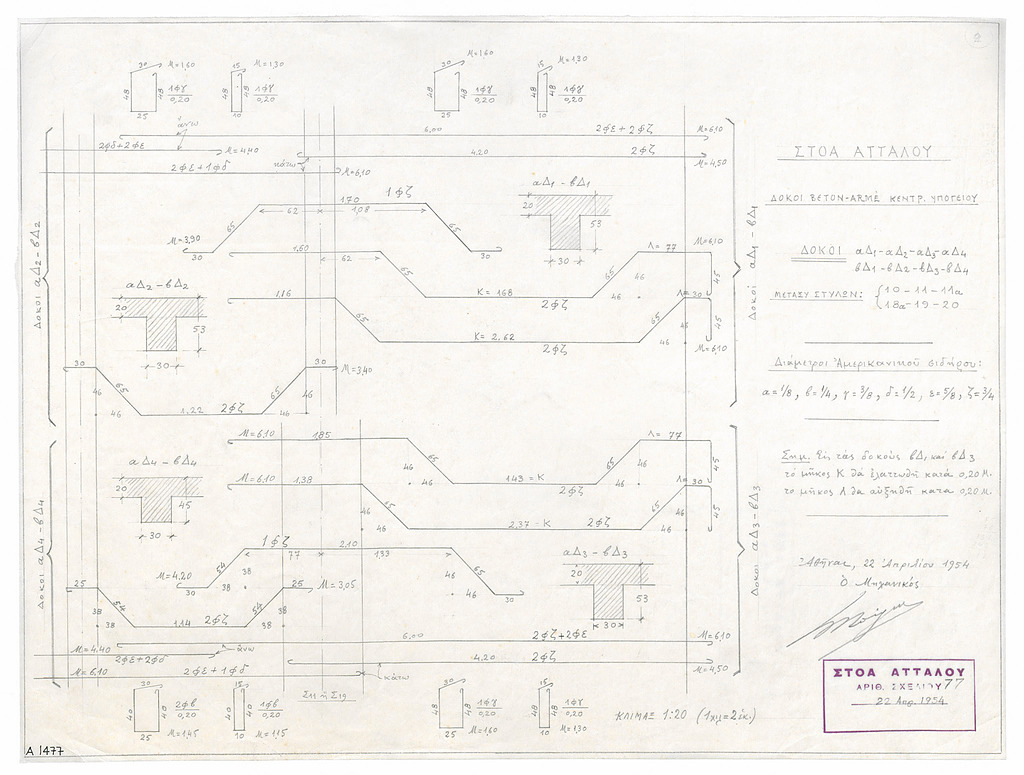 2
30 Μ=1,60
48 48 1φγ
0,20
25
15 Μ=1,30
48 48 1φγ
0,20
10
30 Μ=1,60
48 48 1φγ
0,20
25
15 Μ=1,30
48 48 1φγ
0,20
10
ἄνω
6,00 2φε+2φζ Μ=6,10
2φδ+2φε Μ=4,40
κάτω 4,20 2φζ Μ=4,50
2φε+1φδ Μ=6,10
Δοκοί αΔ2-βΔ2
1,70 1φζ
62 1,08
65 65
Μ=3,90 30 30
1,60 62 65
Κ=168 2φζ
65 46 46
Λ=77 Μ=6,10
45
1,16 65
Κ=2,62 2φζ
65 46 46
Λ=30
45
Μ=6,10
αΔ1-βΔ1
20 53
30
Δοκοί αΔ1-βΔ1
αΔ2-βΔ2
20 53
30
30 30 Μ=3,40
46 65 65 46
46 1,22 2φζ 46
Μ=6,10 1,85 Λ=77
46 65 65 46
46 143=Κ 2φζ 46
45
Μ=6,10 1,38 Λ=30
46 65 65 46
46 2,37=Κ 2φζ 46
45
αΔ4-βΔ4
20 45
30
Δοκοί αΔ4-βΔ4
1φζ 2,10
77 133
54 38 46 65
Μ=4.20 30 38 46 30
25 25 Μ=3,05
38 54 54 38
38 1,14 2φζ 38
αΔ3-βΔ3
20 53
30
Δοκοί αΔ3-βΔ3
6,00 2φζ+2φε Μ=6,10
Μ=4.40 ἄνω
2φε+2φδ 4.20 2φζ Μ=4,50
Μ=6,10 2φε+1φδ κάτω
Σ11 ἤ Σ19
30
40 40 2φβ
0,20
25 Μ=1,45
15
40 40 1φβ
0,20
10 Μ=1,15
30
48 48 1φγ
0,20
25 Μ=1,60
15
48 48 1φγ
0,20
10 Μ=1,30
ΚΛΙΜΑΞ 1:20 (1χιλ=2ἑκ.)
ΣΤΟΑ ΑΤΤΑΛΟΥ
ΔΟΚΟΙ ΒΕΤΟΝ-ARMÉ ΚΕΝΤΡ. ΥΠΟΓΕΙΟΥ
ΔΟΚΟΙ αΔ1-αΔ2-αΔ3-αΔ4
βΔ1-βΔ2-βΔ3-βΔ4
ΜΕΤΑΞΥ ΣΤΥΛΩΝ: 10-11-11α
18α-19-20
Διάμετροι Ἀμερικανικοῦ σιδήρου:
α=1/8, β=1/4, γ=3/8, δ=1/2, ε=5/8, ζ=3/4
Σημ. Εἰς τὰς δοκοὺς βΔ1 καὶ βΔ3
τὸ μῆκος Κ θὰ ἐλαττωθῇ κατὰ 0,20 Μ.
τὸ μῆκος Λ θὰ αὐξηθῇ κατὰ 0,20 Μ.
Ἀθῆναι, 22 Ἀπριλίου 1954
Ὁ Μηχανικός
ΣΤΟΑ ΑΤΤΑΛΟΥ
ΑΡΙΘ. ΣΧΕΔΙΟΥ 77
22 Απρ. 1954
Α 1477